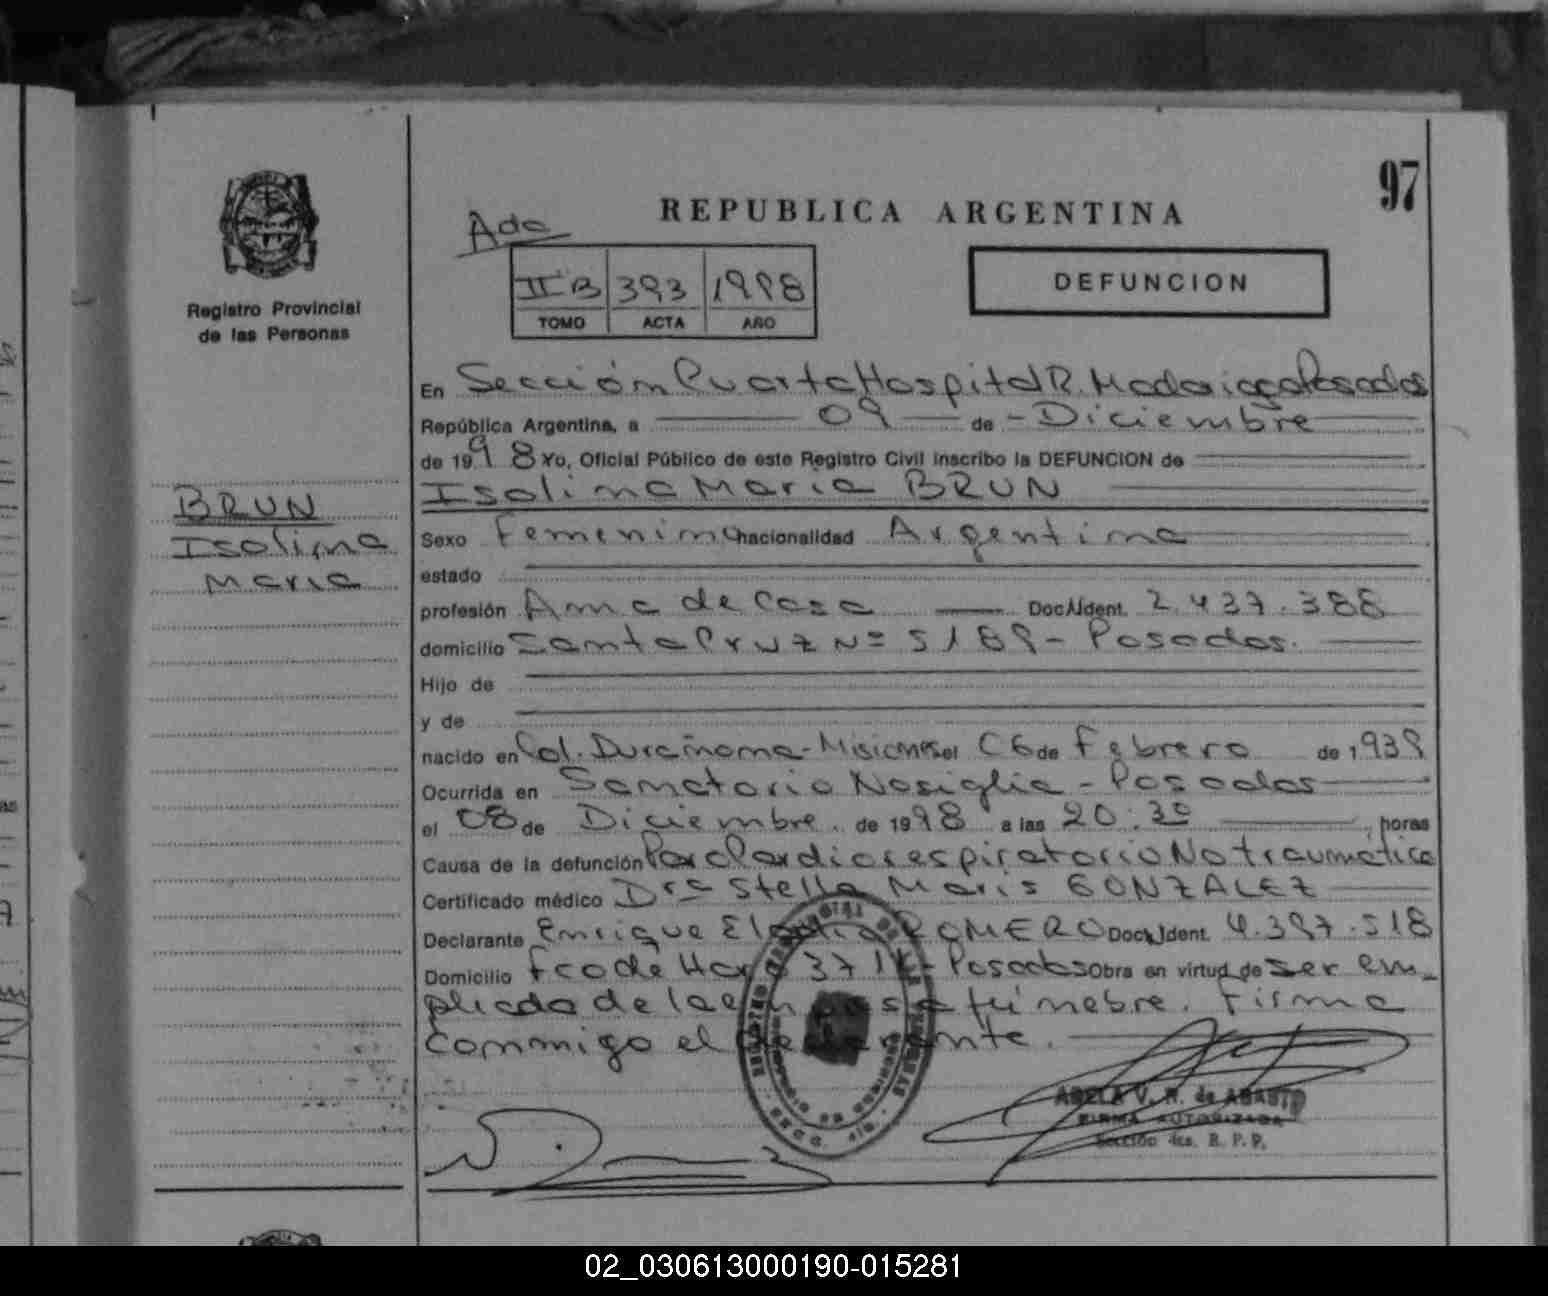 97
REPUBLICA ARGENTINA
Registro Provincial
de las Personas
II B 393 1998
TOMO ACTA AÑO
DEFUNCION
En Sección Cuarta Hospital R. Madariaga Posadas
República Argentina, a 09 de - Diciembre
de 1998 Yo, Oficial Público de este Registro Civil inscribo la DEFUNCION de
Isolina Maria BRUN
BRUN
Isolina
Maria
Sexo Femenina nacionalidad Argentina
estado
profesión Ama de Casa Doc. Ident. 2.437.388
domicilio Santa Cruz Nº 5189 - Posadas.
Hijo de
y de
nacido en Col. - Misiones el 06 de Febrero de 1939
Ocurrida en Sanatorio Nosiglia - Posadas
el 08 de Diciembre. de 1998 a las 20:30, horas
Causa de la defunción Paro Cardiorespiratorio No traumático
Certificado médico Dra Stella Maris GONZALEZ
Declarante Enrique ROMERO Doc. Ident. 4.397.518
Domicilio Fco de Haro 371 - Posadas Obra en virtud de ser em-
pleado de la empresa fúnebre. Firma
conmigo el declarante.
ADELA V. R. de
FIRMA AUTORIZADA
Sección 4ta. R. P. P.
02_030613000190-015281